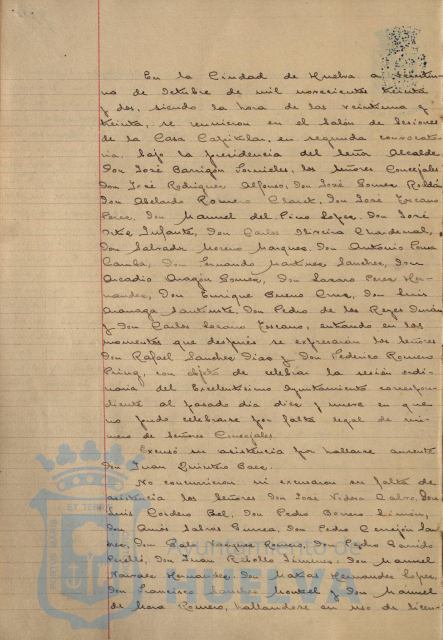 En la Ciudad de Huelva a veintiu-
no de Octubre de mil novecientos treinta
y dos, siendo la hora de las veintiuna y
treinta, se reunieron en el Salón de Sesiones
de la Casa Capitular, en segunda convocato-
ria, bajo la presidencia del Señor Alcalde
Don José Barrigón Fornieles, los Señores Concejales
Don José Rodríguez Alfonso, Don José Gómez Roldán
Don Abelardo Romero Claret, Don José Escano
Pérez, Don Manuel del Pino López, Don José
Ortiz Infante, Don Carlos Oliveira Chardenal,
Don Salvador Moreno Márquez, Don Antonio Pousa
Camba, Don Fernando Martínez Sánchez, Don
Arcadio Aragón Gómez, Don Lázaro Pérez Her-
nández, Don Enrique Bueno Cruz, Don Luis
Don Pedro de los Reyes
y Don Carlos Lozano Escano, entrando en los
momentos que después se expresarán los señores
Don Rafael Sánchez Díaz y Don Federico Romero
con objeto de celebrar la sesión ordi-
naria del Excelentísimo Ayuntamiento correspon-
diente al pasado día diez y nueve en que
no pudo celebrarse por falta legal de nú-
mero de Señores Concejales.
Excusó su asistencia por hallarse ausente
Don Juan Quintero Báez.
No concurrieron ni excusaron su falta de
asistencia los Señores Don José Calvo, Don
Luis Cordero Bel, Don Pedro Borrero Limón,
Don Amós Sabrás Gurrea, Don Pedro Cerrejón
Don Vázquez Romero, Don Pedro Garrido
Perelló, Don Juan Rebollo Jiménez, Don Manuel
Narváez Hernández, Don Matías Hernández López,
Don Francisco Sánchez Don Manuel
de Mora Romero, hallándose en uso de licen-
Ayuntamiento de
HUELVA